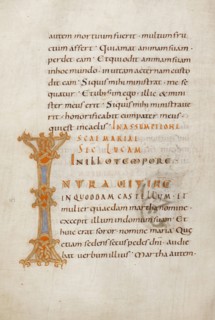 autem mortuum fuerit · multum fru
ctum affert · Qui amat animam suam ·
perdet eam · Et qui odit animam suam
in hoc mundo · in vitam aeternam custo
dit eam · Siquis mihi ministrat · me se
quatur · Et ubi sum ego · illic & mini
ster meus erit · Siquis mihi ministrave
rit · honorificabit eum pater meus ·
qui est in caelis · IN ASSUMPTIONE
SCAE MARIAE
SEC LUCAM
IN ILLO TEMPORE
INTRAVIT IHS
IN QUODDAM CASTELLUM · ET
mulier quaedam martha nomine ·
excepit illum in domum suam · Et
huic erat soror nomine maria · Quae
etiam sedens secus pedes dni · audie
bat verbum illius · Martha autem